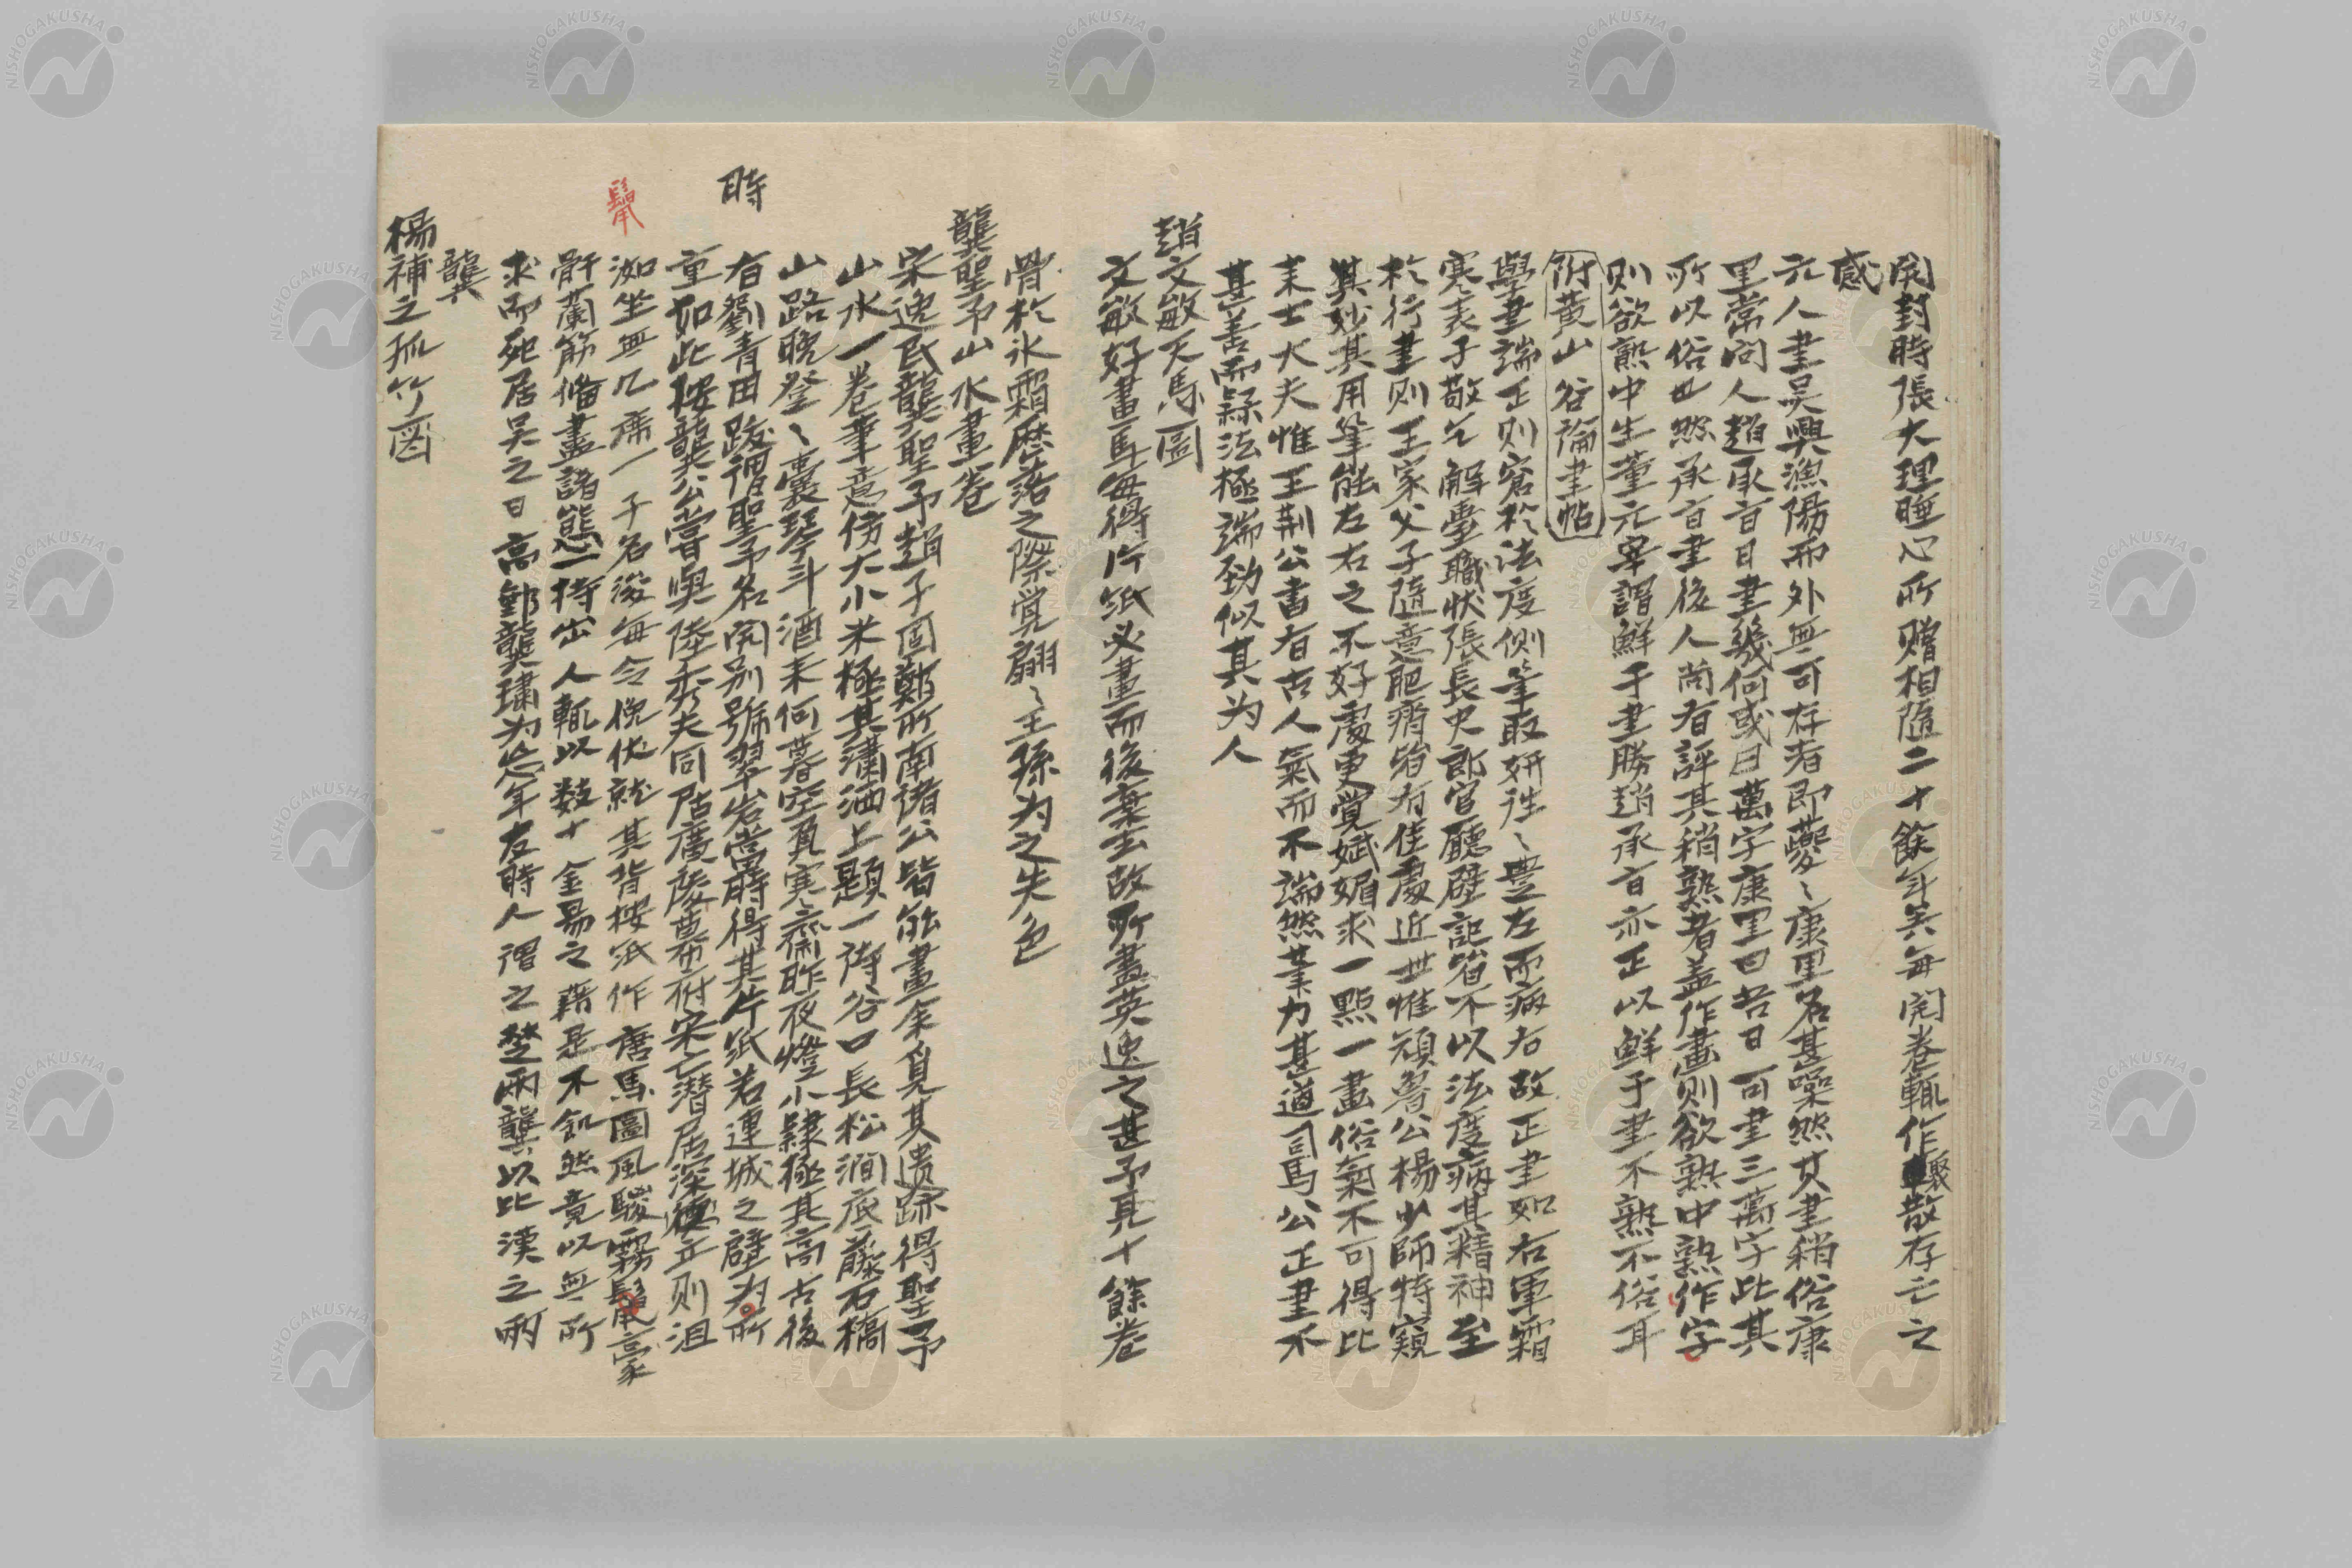 開封時張大理睡心所贈相隨二十餘年矣每開卷輒作聚散存亡之
感
元人書吳興漁陽而外無可存者即夔〻康里名甚噪然其書稍俗康
里常問人趙承旨日書幾何或曰萬字康里曰吾日可書三萬字此其
所以俗也然承旨書後人尚有評其稍熟者盖作畫則欲熟中熟作字
则欲熟中生董元宰謂鮮于書勝趙承旨亦正以鮮于書不熟不俗耳
附黄山谷論書帖
學書端正则窘於法度侧筆取妍往〻豊左而病右故正書如右軍霜
寒表子敬乞解臺職状張長史郎官廳壁記皆不以法度病其精神至
於行書则王家父子隨意肥瘠皆有佳處近世惟顔魯公楊少師特窺
其妙其用筆能左右之不好處更覚娬媚求一點一畫俗氣不可得比
来士大夫惟王荆公書有古人氣而不端然筆力甚遒司馬公正書不
甚善而隸法極端勁似其为人
趙文敏天馬圖
文敏好畫馬每得片紙必畫而後棄去故所畫英逸之甚予見十餘卷
骨於氷霜歴落之際覚翩〻王孫为之失色
龔聖予山水畫卷
宋逸民龔聖予趙子固鄭所南诸公皆能畫余覓其遺跡得聖予
山水一卷筆意仿大小米極其瀟洒上題一诗谷口長松澗底藤石橋
山路晩登〻囊琴斗酒来何暮空負寒齋昨夜燈小隸極其高古後
有劉青田跋謂聖予名開别號翠岩當時得其片紙若連城之璧为所
重如此按龔公嘗與陸秀夫同居廣陵幕府宋亡潜居深德立则沮
洳坐無几席一子名浚每令俛伏就其背按紙作唐馬圖風騣霧鬣豪
骭蘭筋備盡諸態一持出人輒以数十金易之藉是不飢然竟以無所
求而死居吴之日高郵龔璛为忘年友時人謂之楚兩龔以比漢之兩
龔
楊補之孤竹啚
時
鬣